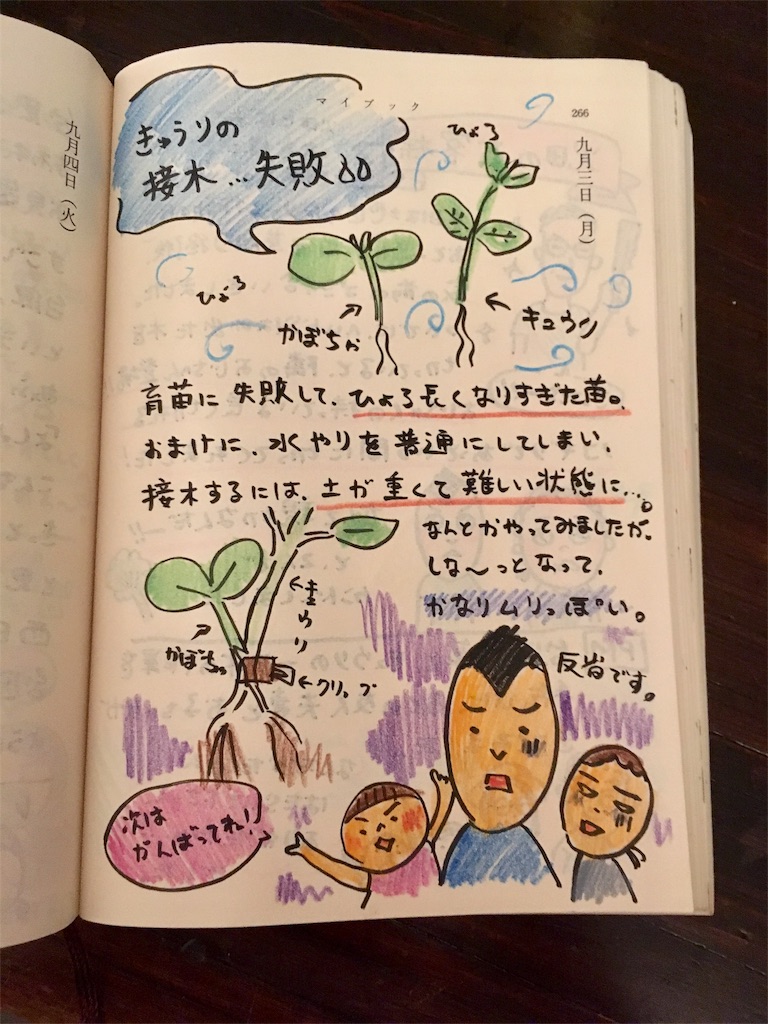 マイブック
266
九月三日（月）
九月四日（火）
きゅうりの
接木…失敗
ひょろ
ひょろ
かぼちゃ
キュウリ
育苗に失敗して、ひょろ長くなりすぎた苗。
おまけに、水やりを普通にしてしまい、
接木するには、土が重くて難しい状態に…。
なんとかやってみましたが、
しな〜っとなって、
かなりムリっぽい。
反省です。
きゅうり
かぼちゃ
クリップ
次は
がんばってね!!